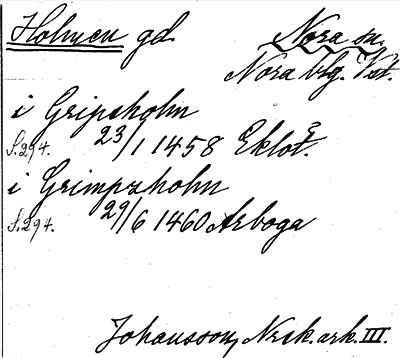 Holmen gd.
Nora sn.
Nora bg. Vstm.
i Gripsholm
S.294. 23/1 1458 Eklot.
i Grimpzholm
S.294. 29/6 1460 Arboga
Johansson, Nrsk. ark. III.